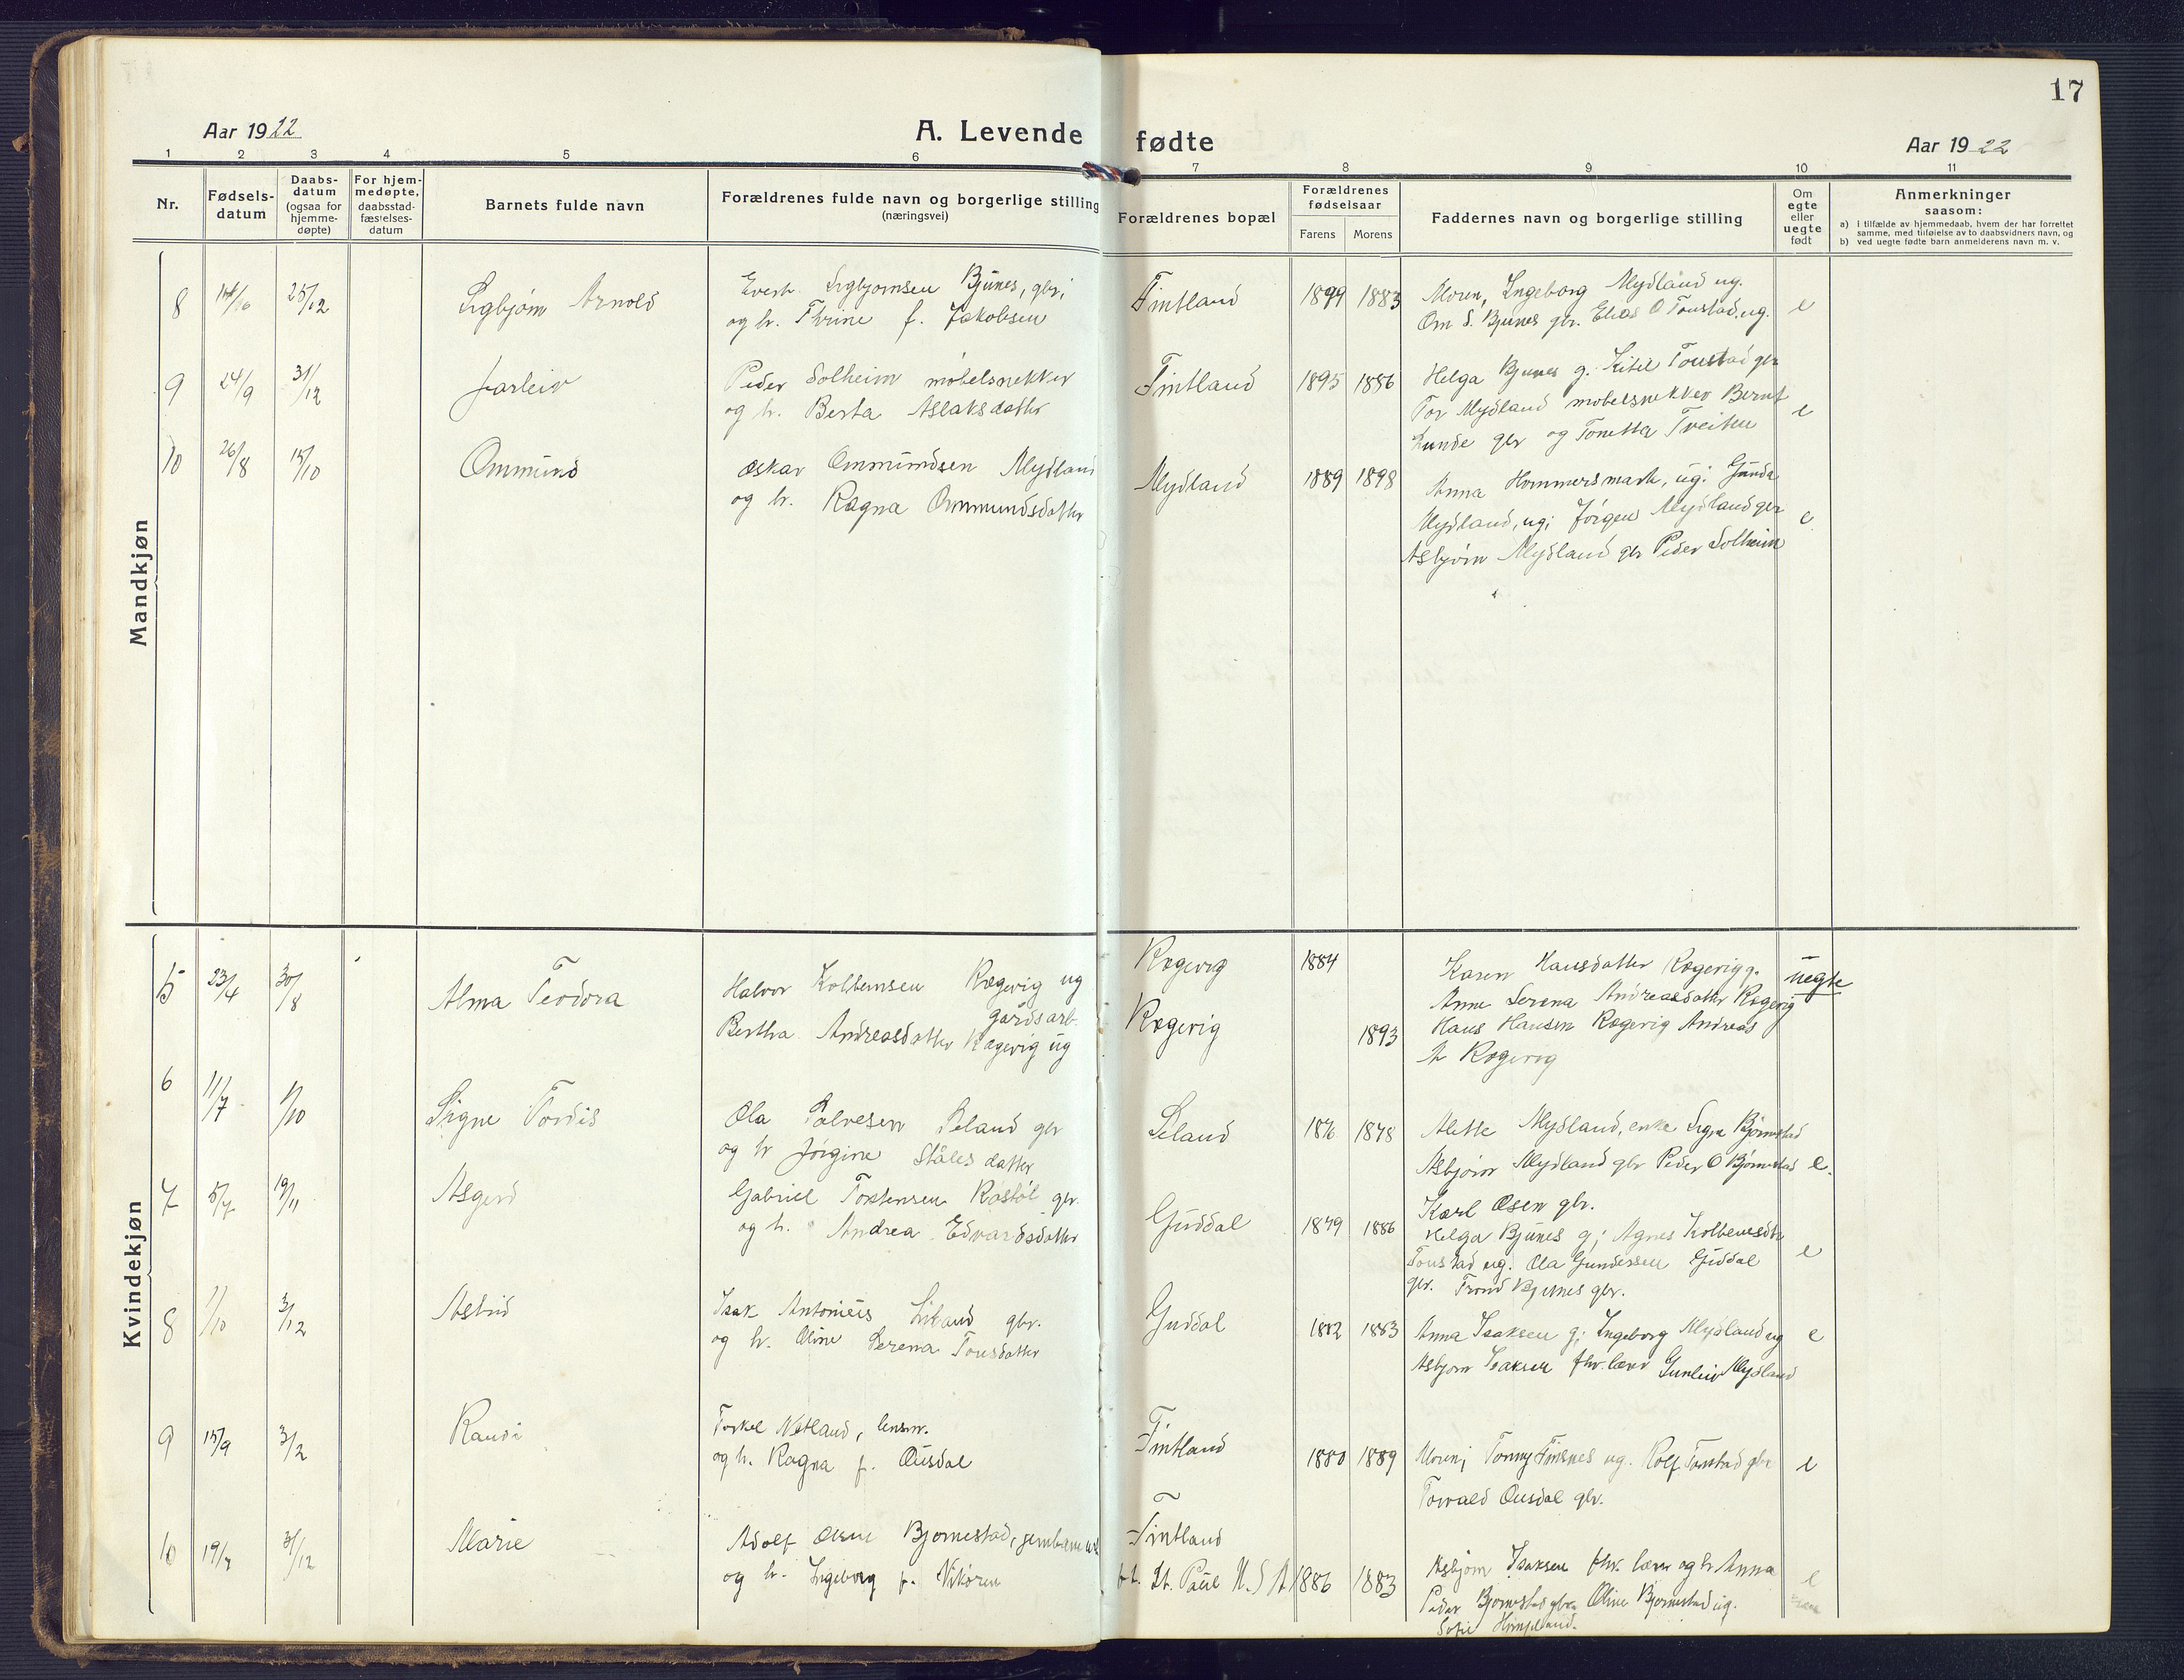 17
Aar 1922
A. Levende fødte
Aar 1922
1 2 3 4 5 6 7 8 9 10 11
Nr.
Fødsels-
datum
Daabs-
datum
(ogsaa for
hjemme-
døpte)
For hjem-
medøpte,
daabsstad-
fæstelses-
datum
Barnets fulde navn
Forældrenes fulde navn og borgerlige stilling
(næringsvei)
Forældrenes bopæl
Forældrenes
fødselsaar
Farens Morens
Faddernes navn og borgerlige stilling
Om
egte
eller
uegte
født
Anmerkninger
saasom:
a) i tilfælde av hjemmedaab, hvem der har forrettet
samme, med tilføielse av to daabsvidners navn, og
b) ved uegte fødte barn anmelderens navn m. v.
Mandkjøn
8 14/10 25/12 Sigbjørn Arnold
Sigbjørnsen Bjunes, gbr;
og h. Thrine f. Jakobsen
Tintland 1899 1883
Moren, Ingeborg Mydland ug.
Om S. Bjunes gbr. Elias O Tonstad, ug. e
9 24/9 31/12 Jarleiv
Peder Solheim møbelsnekker
og h. Berta Aslaksdatter
Tintland 1895 1886
Helga Bjunes g. Ketil Tonstad gbr
Tor Mydland møbelsnekker Bernt
Lunde gbr og Tonetta Tveiten e
10 26/8 15/10 Ommund
Oskar Ommundsen Mydland
og h. Ragna Ommundsdatter
Mydland 1889 1898
Anna Hommersmark, ug; Gunda
Mydland, ug; Jørgen Mydland gbr
Asbjørn Mydland gbr Peder Solheim e
Kvindekjøn
5 23/4 30/8 Alma Teodora
Halvor Kolbensen Rægevig ug
gårdsarb.
Bertha Andreasdatter Rægevig ug
Rægevig 1884
Rægevig 1893
Karen Hansdatter Rægevig g.
Anne Serena Andreasdatter Rægevig
Hans Hansen Rægevig Andreas
A Rægevig
uegte
6 11/7 1/10 Signe Tordis
Ola Salvesen Seland gbr
og h Jørgine Ståles datter
Seland 1876 1878
Alette Mydland, enke Signe Bjørnestad
Asbjørn Mydland gbr Peder O Bjørnestad e.
Karl Osen gbr.
7 5/7 19/11 Asgerd
Gabriel Torstensen Røstøl gbr.
og h. Andrea Edvardsdatter
Guddal 1879 1886
Helga Bjunes g; Agnes Kolbensdtr
Tonstad ug. Ola Gundersen Guddal
gbr. Trond Bjunes gbr. e
8 1/10 3/12 Astrid
Isak Antonius Liland gbr.
og h. Oline Serena Tonsdatter
Guddal 1882 1883
Anna Isaksen g; Ingeborg Mydland ug
Asbjørn Isaksen fhv. lærer Gunleiv Mydland e
9 15/9 3/12 Randi
Torkel Netland, lensm.
og h. Ragna f. Ousdal
Tintland 1880 1889
Moren; Tonny Finsnes ug. Rolf Tonstad gbr
Torvald Ousdal gbr. e
10 19/7 31/12 Marie
Adolf Olsen Bjørnestad,
og h. Ingeborg f. Vikøren
Tintland
f.t. St. Paul U.S A 1886 1883
Asbjørn Isaksen fhv. lærer og h Anna
Peder Bjørnestad gbr Oline Bjørnestad ug.
Sofie Himpeland. e